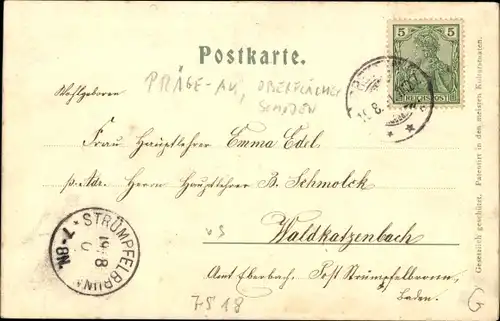 Postkarte.
PRÄGE-AK, OBERFLÄCHEN
SCHÄDEN
Wohlgeboren
Frau Hauptlehrer Emma Edel
p. Adr. Herrn Hauptlehrer B. Schmolck
VS
Waldkatzenbach
Amt Eberbach. Post Strümpfelbronn,
Baden.
7518
5 5
REICHSPOST
STRÜMPFELBRUNN
7-8N.
Gesetzlich geschützt. Patentirt in den meisten Kulturstaaten.